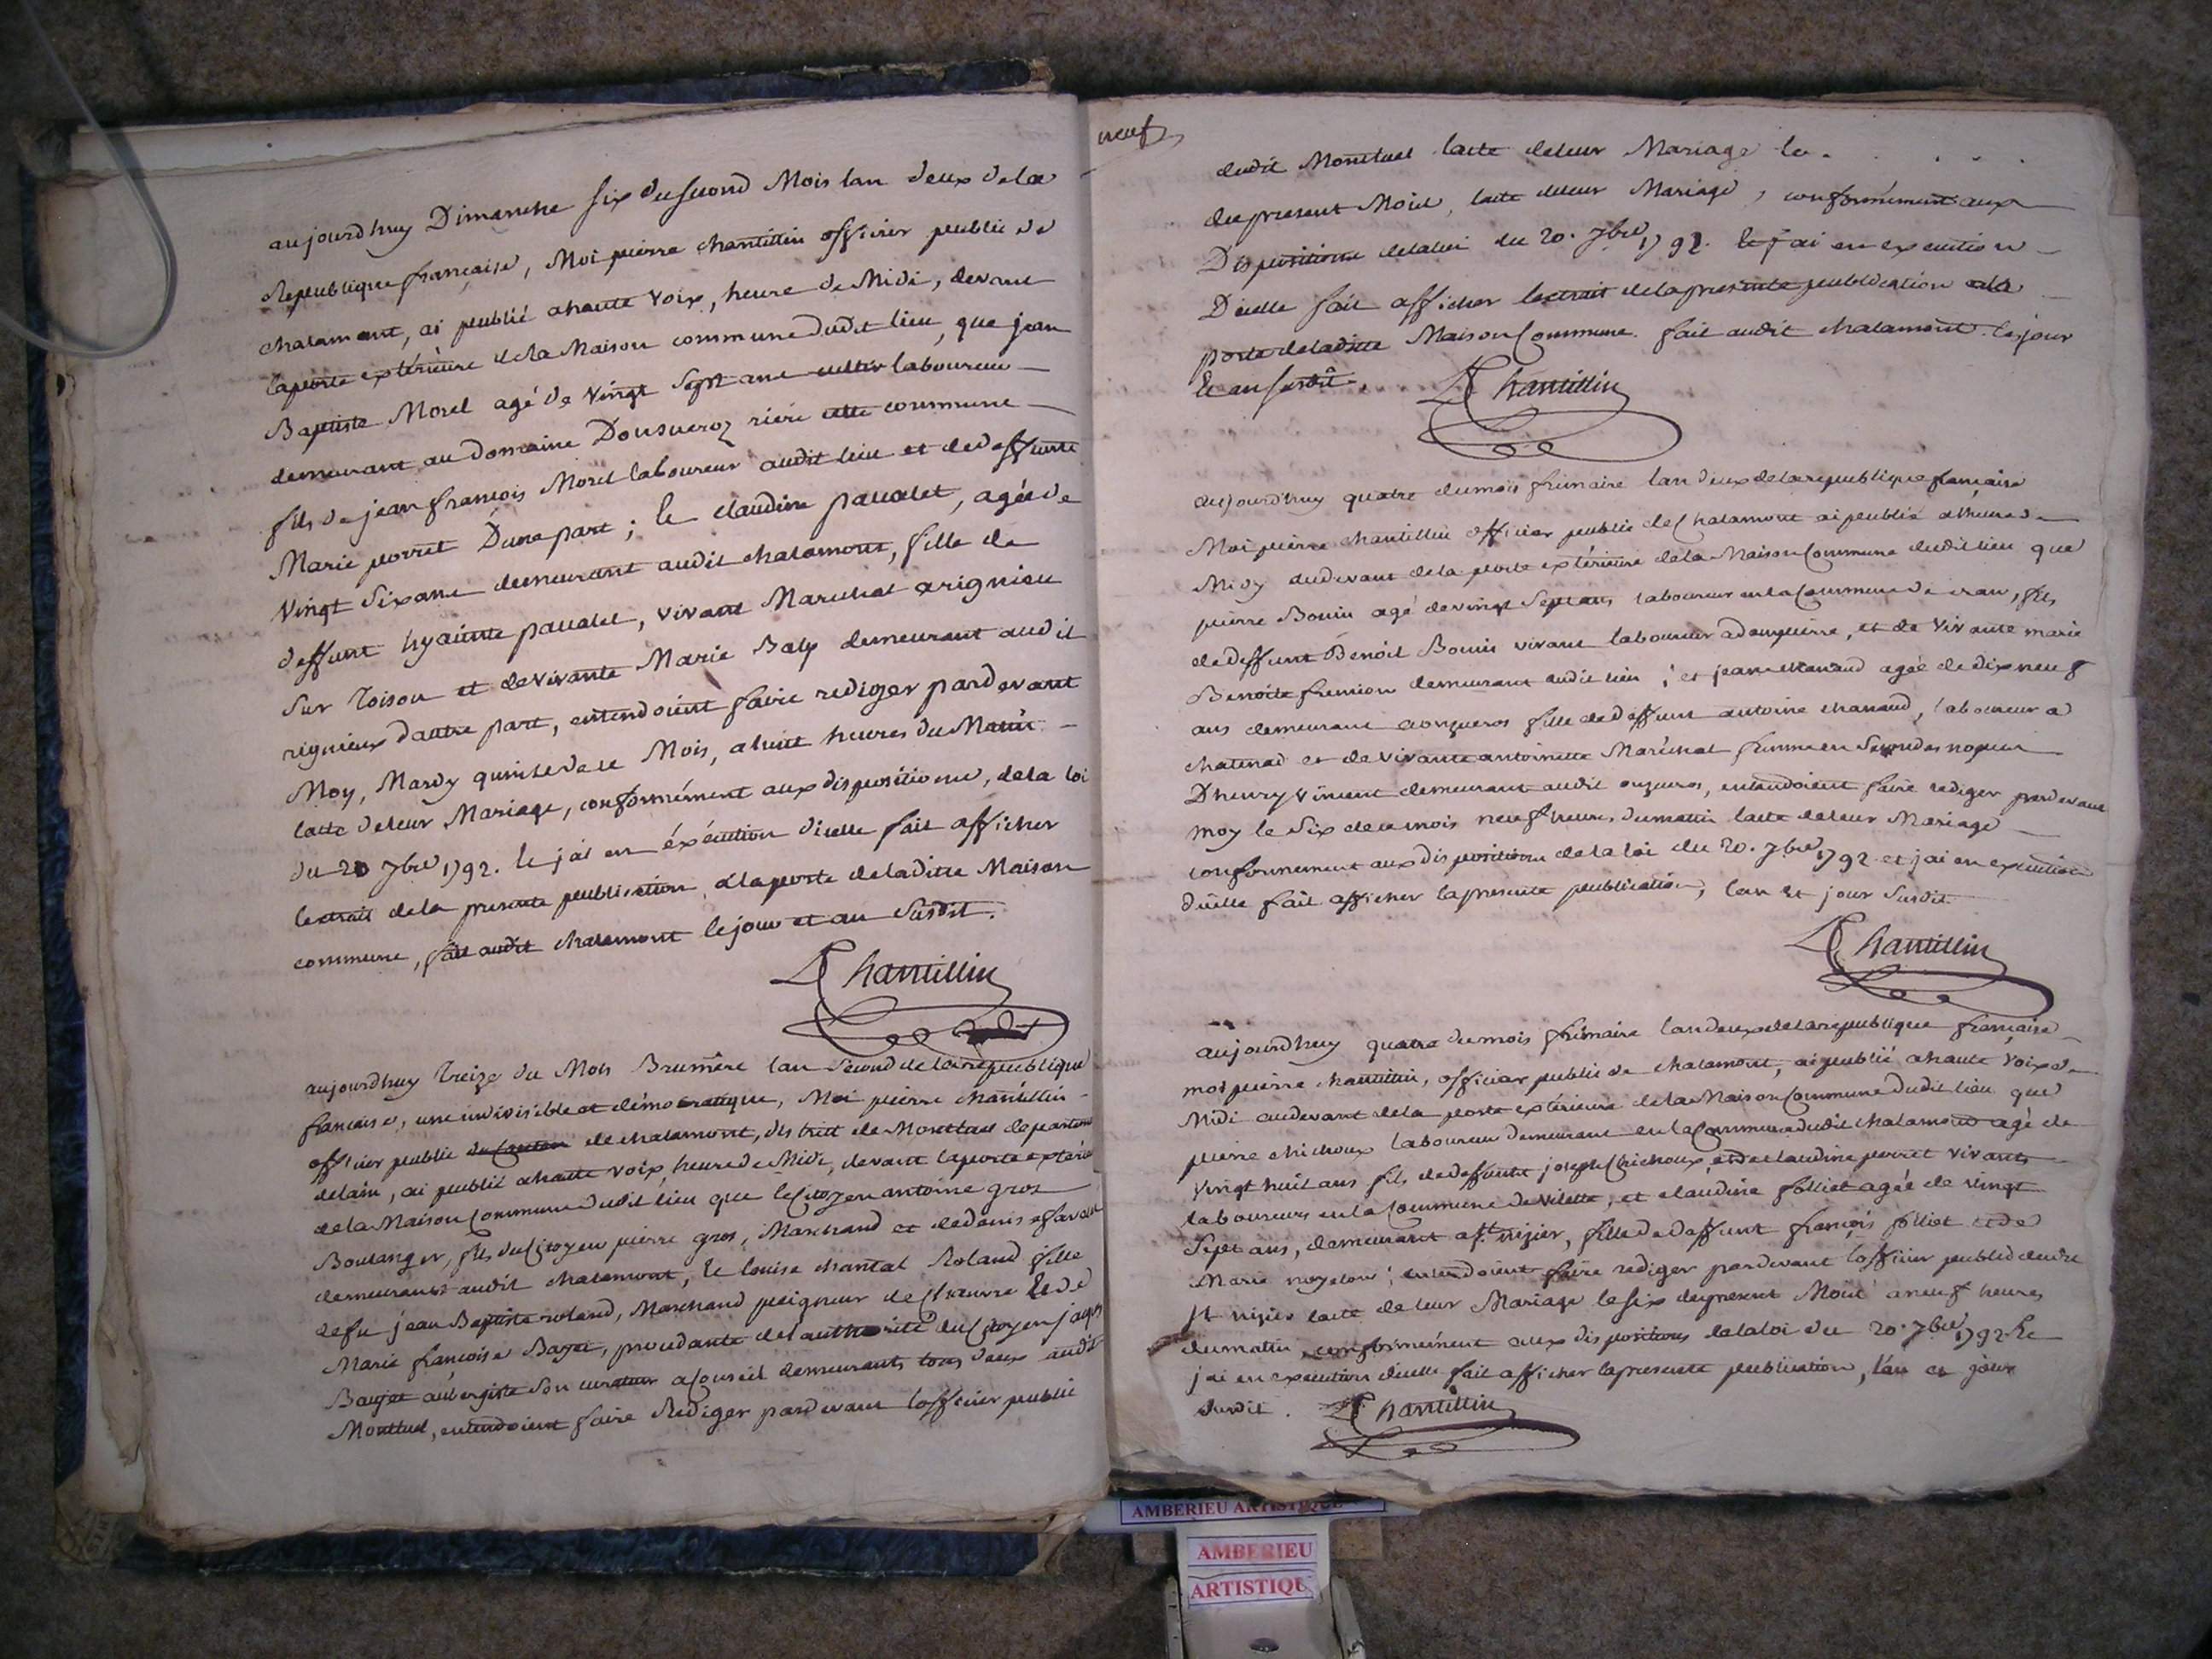 aujourdhuy Dimanche six du second Mois lan deux de la
Republique française, Moi pierre chantillin officier public de
chalamont, ai publié a haute voix, heure de Midi, devant
la porte extérieure de la Maison commune dudit lieu, que jean
Baptiste Morel agé de vingt sept ans laboureur
demeurant au domaine Dousueroz riere cette commune
fils de jean françois Morel laboureur audit lieu et de deffunte
Marie perret D'une part ; Et claudine paualet, agée de
vingt six ans demeurant audit chalamont, fille de
deffunt hyacinte paualet, vivant Marechal a rignieu
sur Toison et de vivante Marie Baly demeurant audit
rignieux dautre part, entendoient faire rediger pardevant
Moy, Mardy quinze de ce Mois, a huit heures du Matin
lacte de leur Mariage, conformément aux dispositions, de la loi
du 20 7bre 1792. Et jai en éxécution dicelle fait afficher
lextrait de la presente publication, a la porte de la ditte Maison
commune, fait audit chalamont le jour et an susdit.
P Chantillin
aujourdhuy treize du Mois Brumère lan second de la republique
francaise, une indivisible et démocratique, Moi pierre chantillin
officier public du canton de chalamont, district de Montluel departem
de lain, ai publié a haute voix, heure de Midi, devant la porte extérie
de la Maison Commune dudit lieu que le Citoyen antoine gros
Boulanger, fils du Citoyen pierre gros, Marchand et de denise favan
demeurants audit chalamont, Et louise chantal Roland fille
de fu jean Baptiste roland, Marchand peigneur de Chanvre Et de
Marie françoise Bajat, procedante de lauthorité du Citoyen jaqu
Baujat aubergiste son curateur a Conseil demeurants tous deux audit
Montluel, entendoient faire Rediger pardevant lofficier public
neuf
dudit Montluel lacte de leur Mariage le . . . .
du present Mois, lacte de leur Mariage, conformément aux
Dispositions de la loi du 20. 7bre 1792. Et jai en execution
Dicelle fait afficher lextrait de la presente publication a la
porte de la ditte Maison Commune. fait audit chalamont les jour
Et an susdit.
P Chantillin
aujourd'huy quatre du mois frimaire lan deux de la republique française
Moi pierre chantillin officier public de Chalamont ai publié a lheure de
Midy audevant de la porte extérieure de la Maison Commune dudit lieu que
pierre Bouin agé de vingt sept ans laboureur en la Commune de cran, fils
de deffunt Bénoit Bouin vivant laboureur a dompierre, et de vivante marie
Benoite fremion demeurant audit lieu ; et jeanne chanaud agée de dix neuf
ans demeurant a onzueros fille de deffunt antoine chanaud, laboureur a
chatenad et de vivante antoinette Maréchal femme en secondes noces
D'henry vincent demeurant audit onzueros, entendoient faire rediger pardevant
moy le six de ce mois neuf heures du matin lacte de leur Mariage
conformement aux dispositions de la loi du 20. 7bre 1792 et jai en execution
dicelle fait afficher la presente publication, lan et jour susdit.
P Chantillin
aujourd'huy quatre du mois frimaire lan deux de la republique française
moi pierre chantillin, officier public de chalamont, ai publié a haute voix de
Midi audevant de la porte extérieure de la Maison Commune dudit lieu que
pierre chichoux laboureur demeurant en la Commune dudit chalamont agé de
vingt huit ans fils de deffunt joseph Chichoux, et de claudine perret vivants
laboureurs en la Commune de vilette, et claudine folliet agée de vingt
sept ans, demeurant a st. nizier, fille de deffunt françois folliet et de
Marie noyelou ; entendoient faire rediger pardevant lofficier public dudit
st nizier lacte de leur Mariage le six du present Mois a neuf heures
du matin, conformément aux dispositions de la loi du 20. 7bre 1792. Et
jai en execution dicelle fait afficher la presente publication, lan et jour
susdit. P Chantillin
AMBERIEU ARTISTIQUE
AMBERIEU
ARTISTIQU